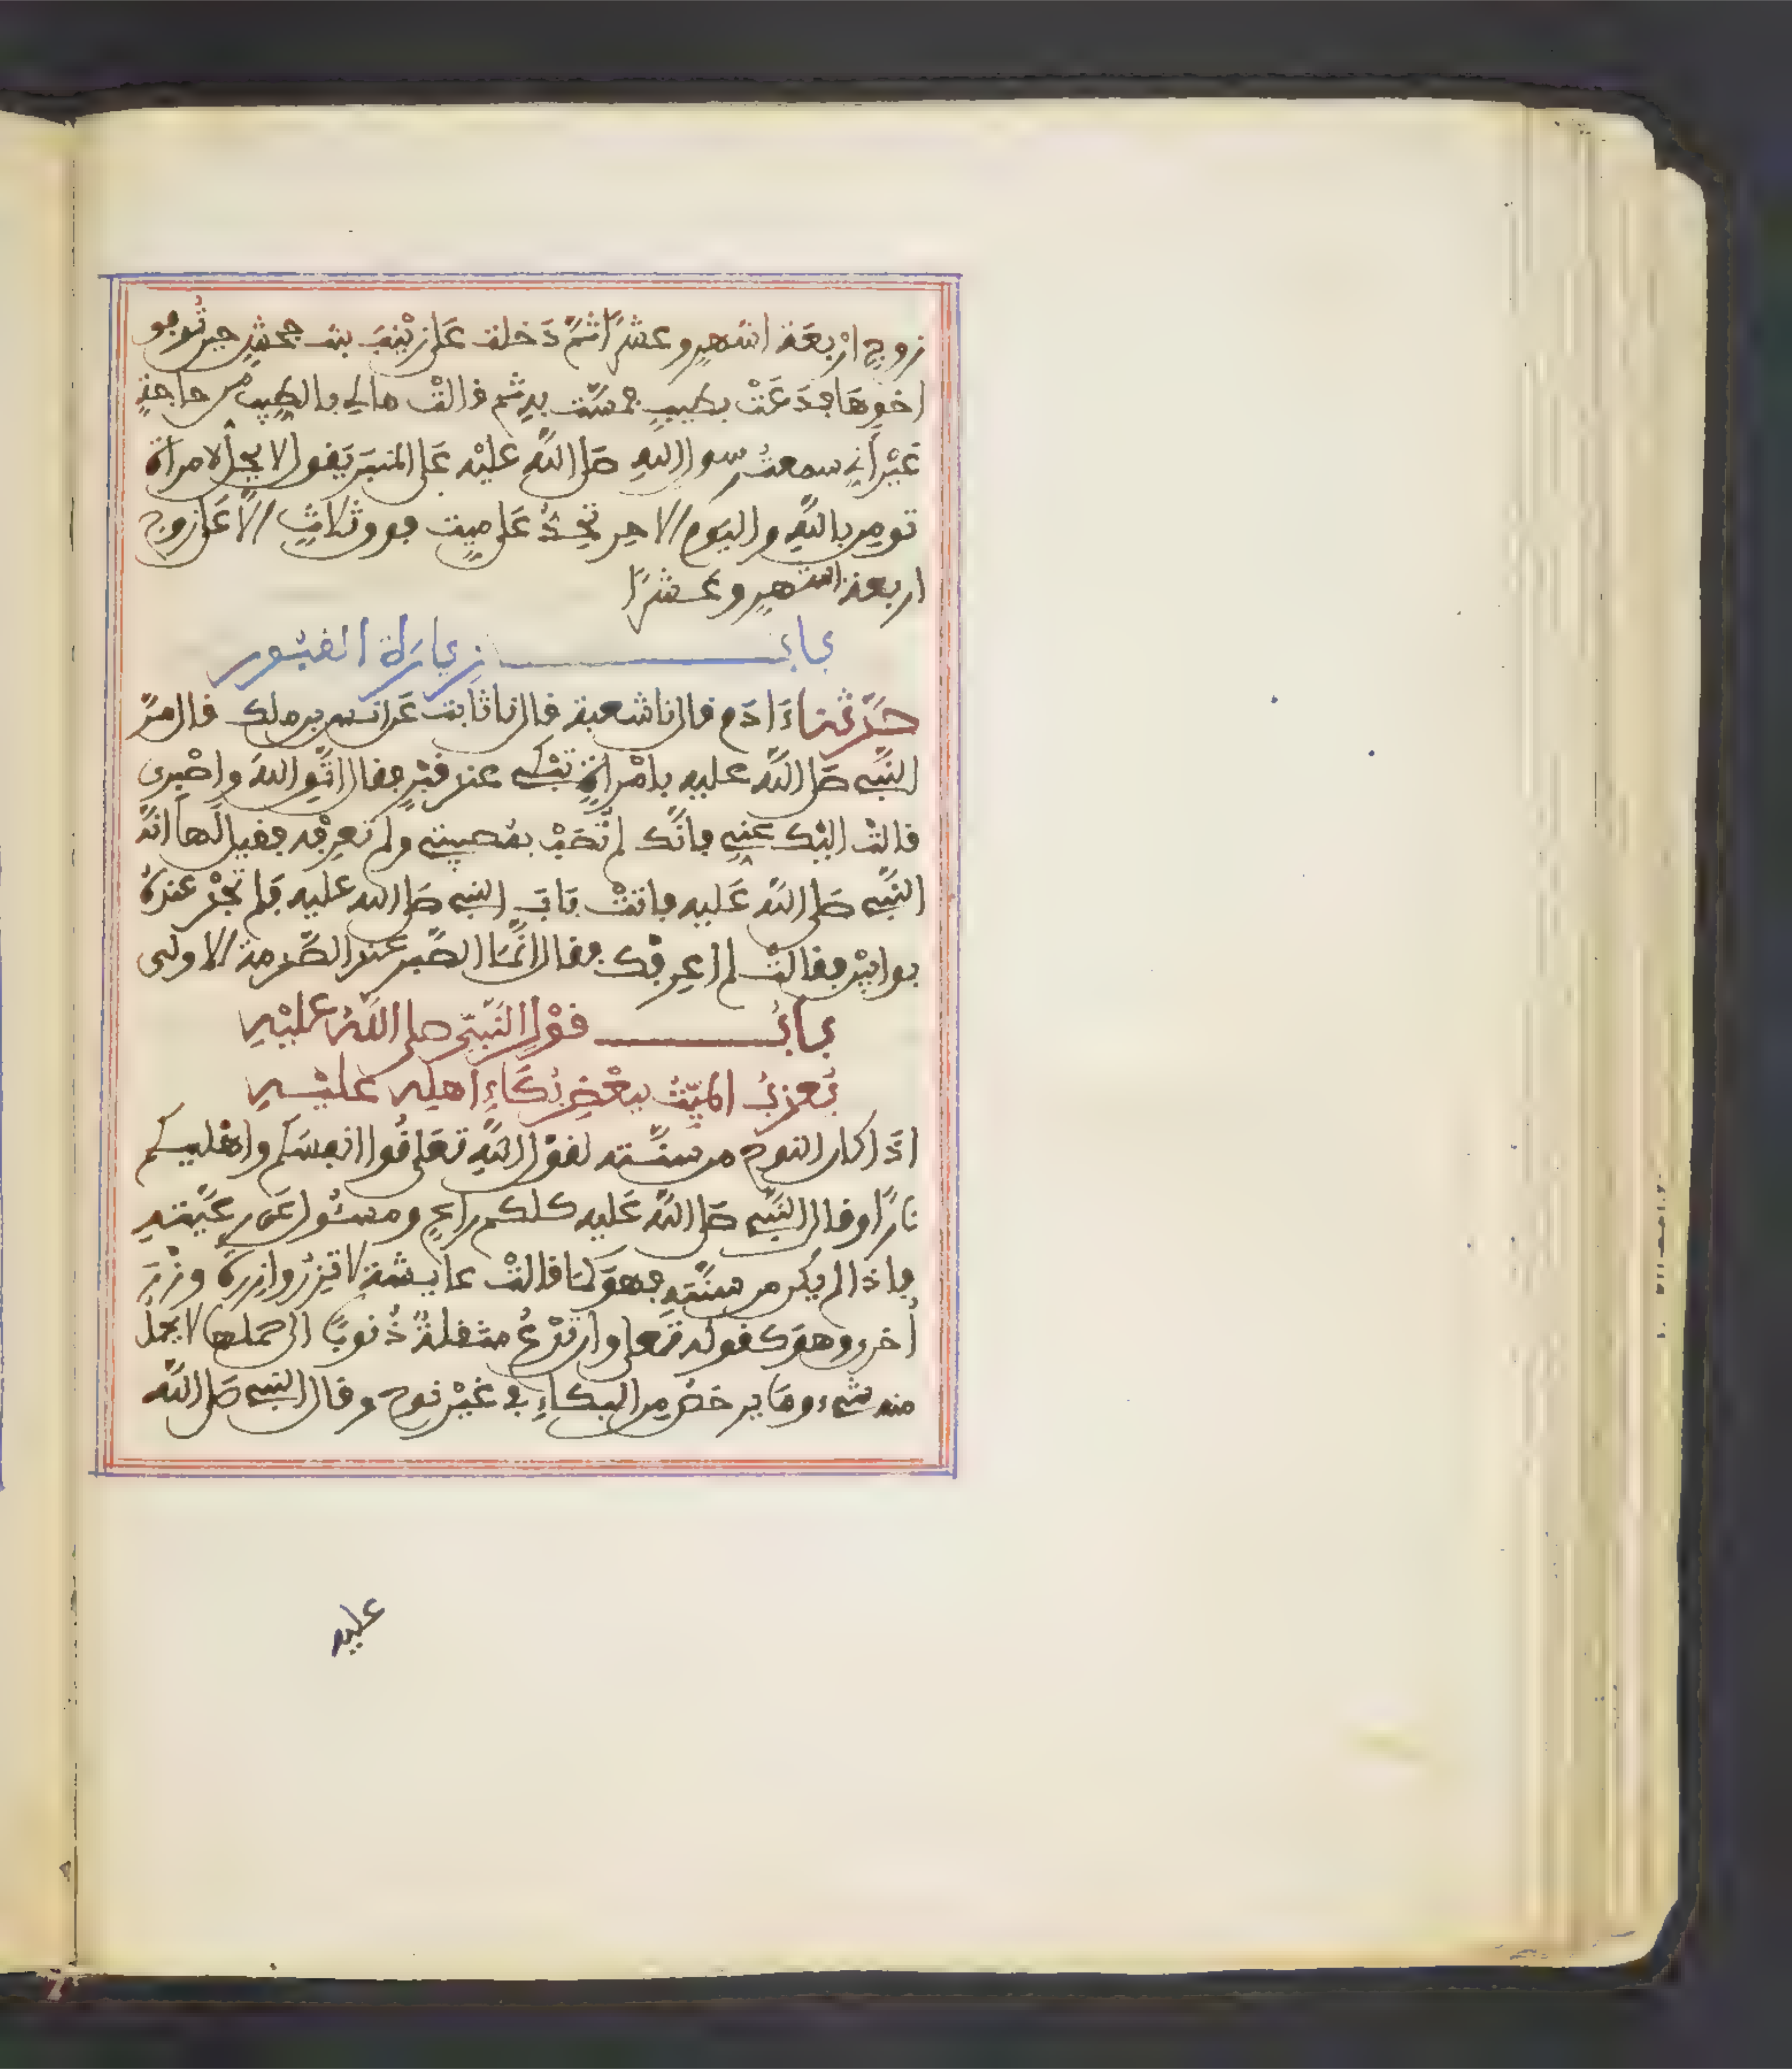 زوج اربعة اشهر وعشرا ثم دخلت على زينب بنت جحش حين توفي
اخوها فدعت بطيب فمست به ثم قالت مالي بالطيب من حاجة
غير اني سمعت رسول الله صلى الله عليه على المنبر يقول لا يحل لامراة
تومن بالله واليوم الاخر تحد على ميت فوق ثلاث الا على زوج
اربعة اشهر وعشرا
باب زيارة القبور
حدثنا ءادم قال نا شعبة قال نا ثابت عن انس بن ملك قال مر
النبي صلى الله عليه بامراة تبكي عند قبر فقال اتق الله واصبري
قالت اليك عني فانك لم تصب بمصيبتي ولم تعرفه فقيل لها انه
النبي صلى الله عليه فاتت باب النبي صلى الله عليه فلم تجد عنده
بوابين فقالت لم اعرفك فقال انما الصبر عند الصدمة الاولى
باب قول النبي صلى الله عليه
يعذب الميت ببعض بكاء اهله عليه
اذا كان النوح من سنته لقول الله تعلى قوا انفسكم واهليكم
نارا وقال النبي صلى الله عليه كلكم راع ومسئول عن رعيته
فاذا لم يكن من سنته فهو كما قالت عايشة لا تزر وازرة وزر
اخرى وهو كقوله تعلى وان تدع مثقلة ذنوبا الى حملها لا يحمل
منه شيء وما يرخص من البكاء في غير نوح وقال النبي صلى الله
عليه